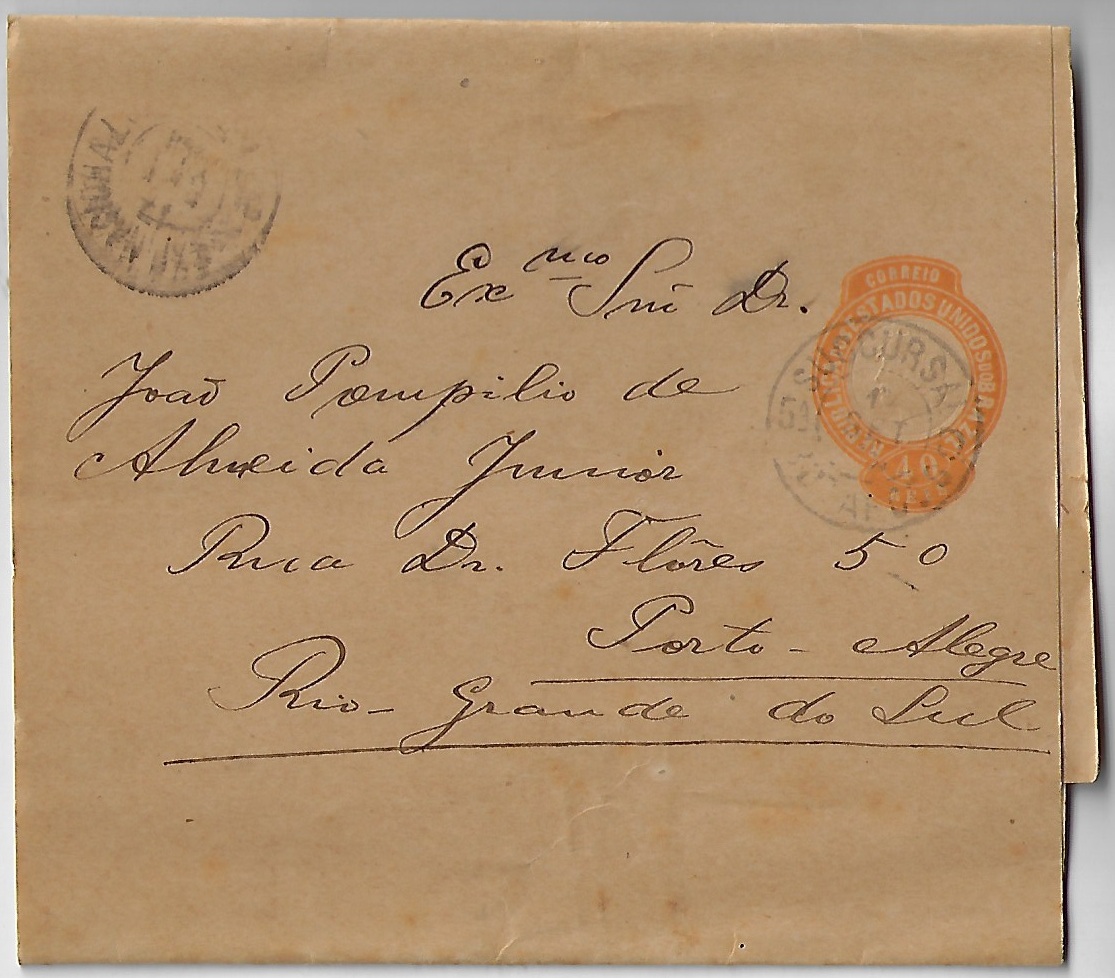 Ex mo Snr Dr.
João Pompilio de
Almeida Junior
Rua Dr. Flôres 50
Porto-Alegre
Rio-Grande do Sul
CORREIO
ESTADOS UNIDOS DO BRAZIL
40
REIS
SUCCURSAL